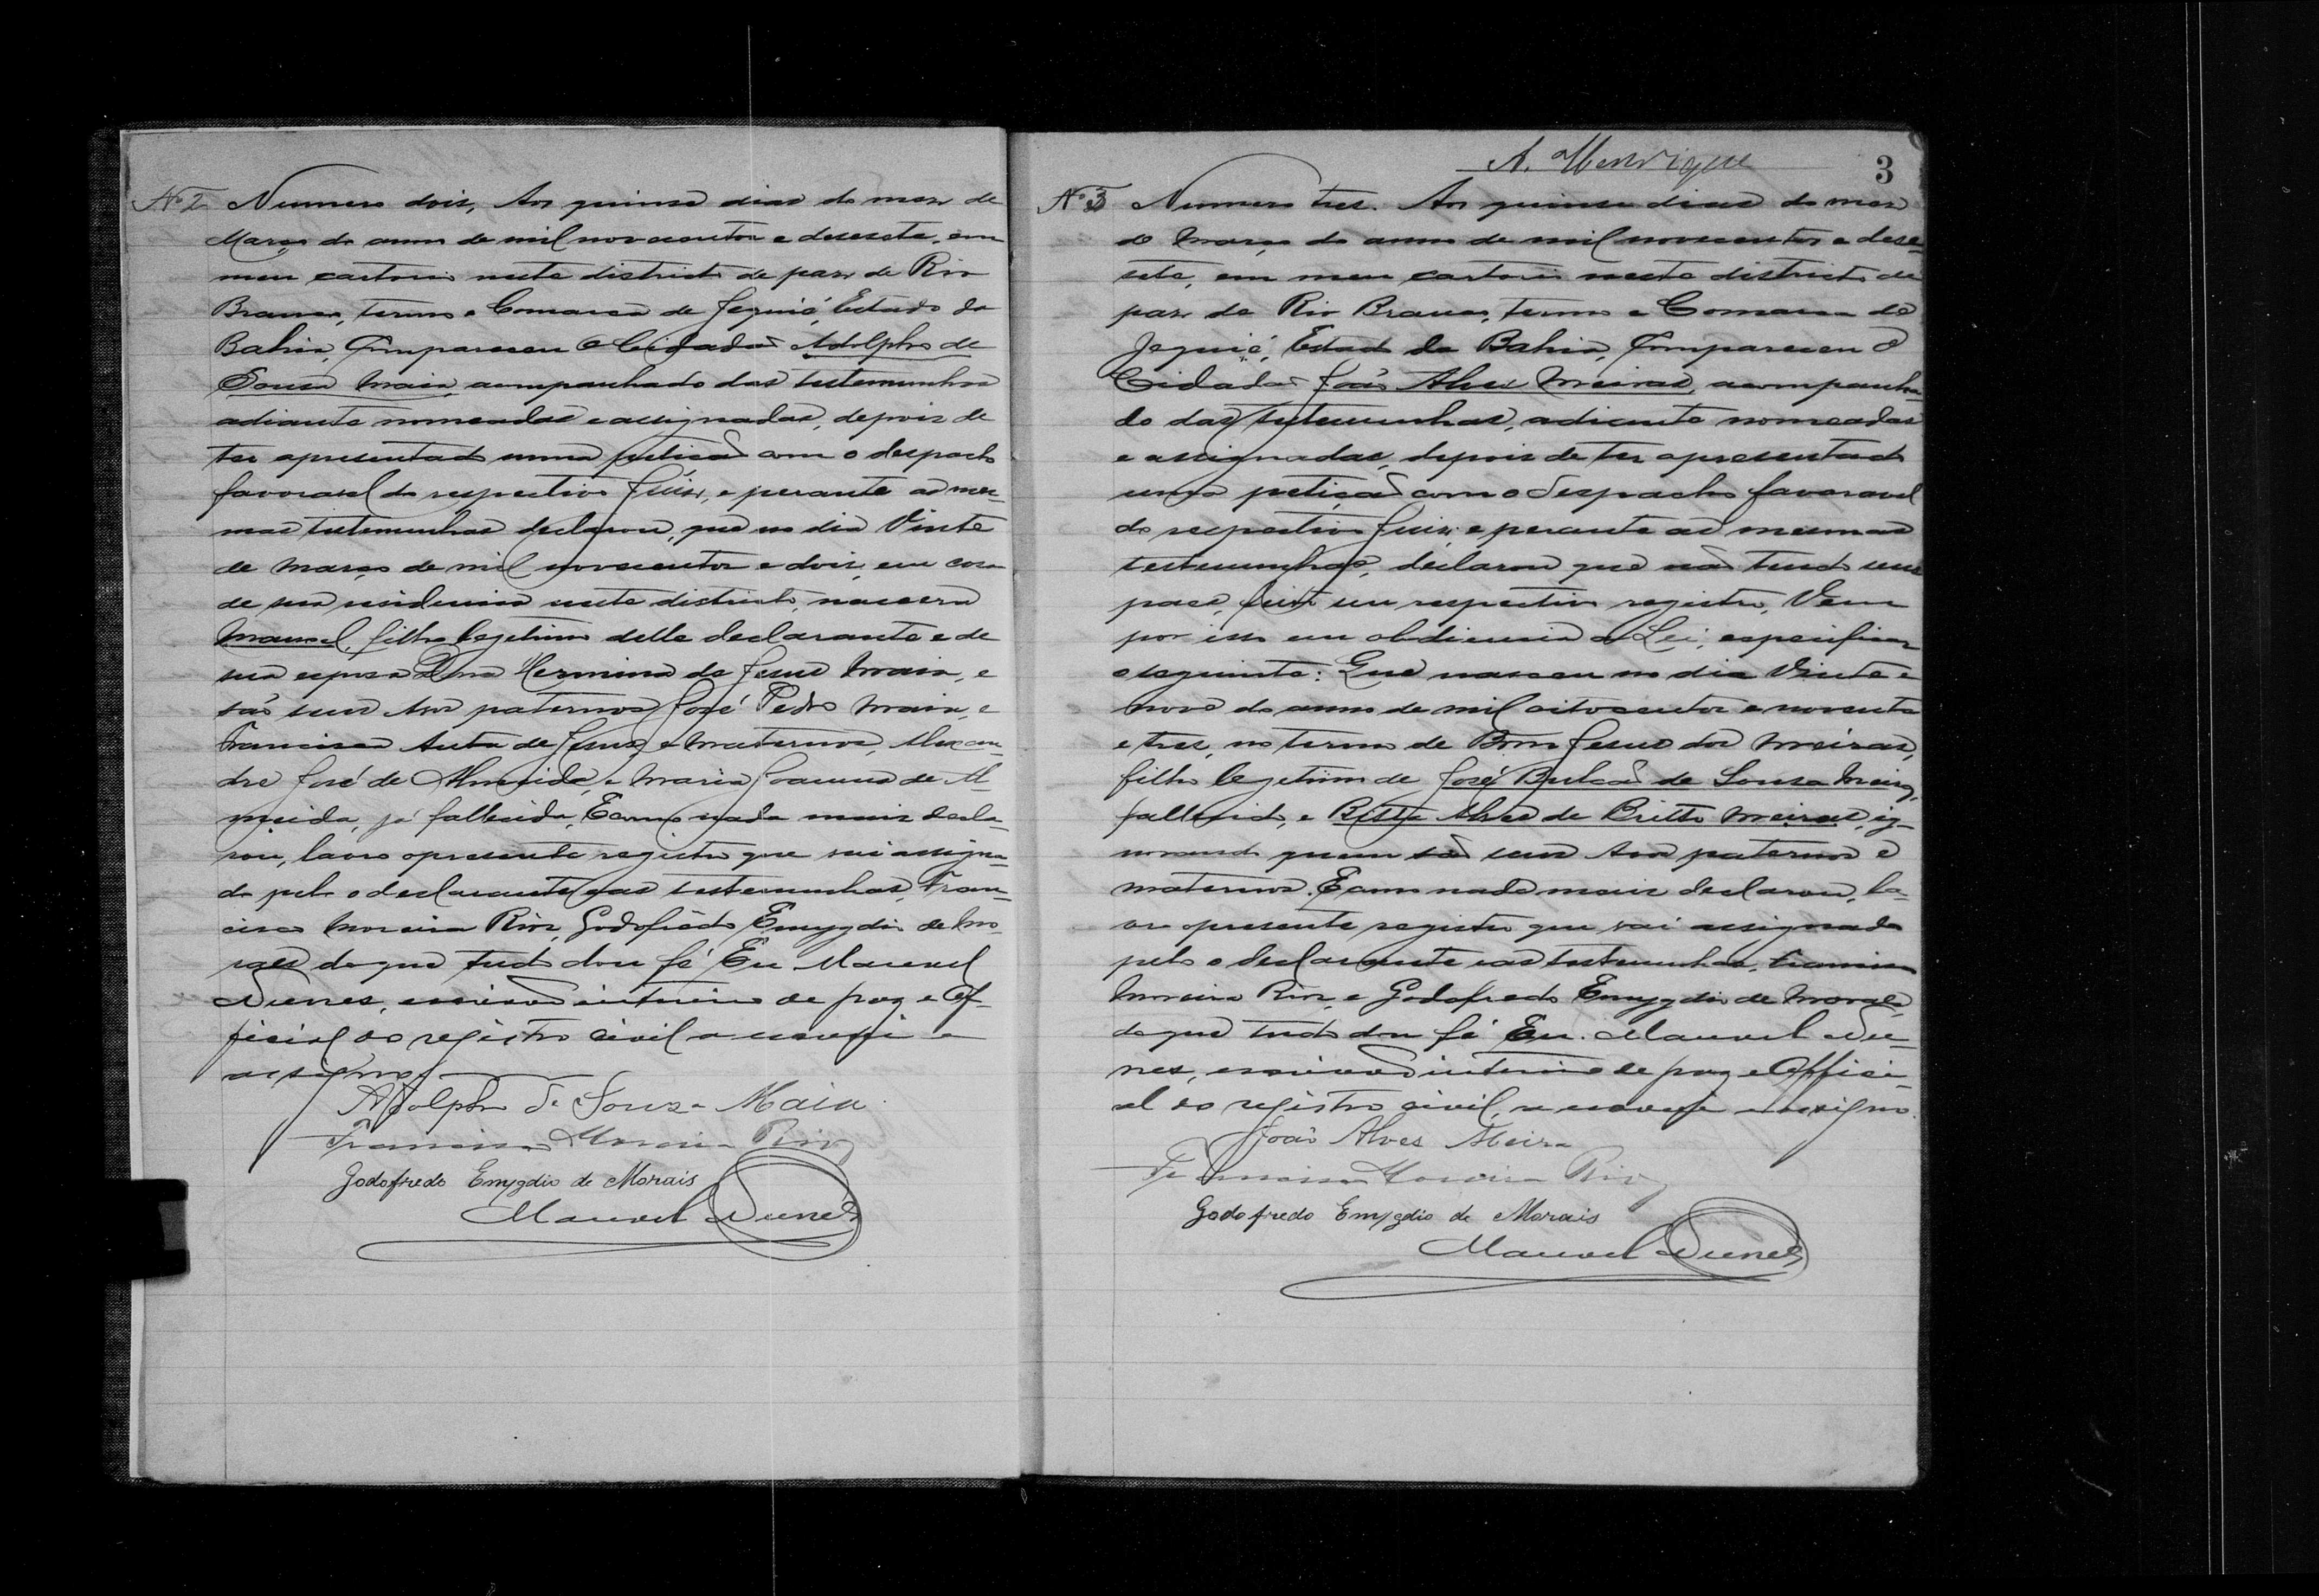 Nº 2 Numero dois, Aos quinse dias do mez de
Março do anno de mil novecentos e desesete, em
meu cartorio neste districto de paz de Rio
Branco, termo e Comarca de Jequié, Estado da
Bahia, Compareceu o Cidadão Adolpho de
Sousa Maia, acompanhado das testemunhas
adiante nomeadas e assignadas, depois de
ter apresentado uma petição com o despacho
favoravel do respectivo Juiz, e perante as mes-
mas testemunhas declarou, que no dia Vinte
de Março de mil novecentos e dois, em casa
de sua residencia neste districto, nascera
Manoel, filho legetimo delle declarante e de
sua esposa Dona Hermina de Jesus Maia, e
são seus Avos paternos José Pedro Maia, e
Francisca Auta de Jesus, e Maternos, Alexan-
dre José de Almeida, e Maria Joanna de Al-
meida, já fallecida, E como nada mais decla-
rou, lavro o presente registro que vai assigna-
do pelo o declarante e as testemunhas, Fran-
cisco Moreira Rios, Godofredo Emygdio de Mo-
raes do que tudo dou fé Eu Manoel
Nunes, escrivão interino de paz e Of-
ficial do registro civil o escrevi e
assigno.
Adolpho de Souza Maia
Francisco Moreira Rios
Godofredo Emygdio de Morais
Manoel Nunes
A. Henrique
3
Nº 3 Numero tres. Aos quinse dias do mez
de Março do anno de mil novecentos e dese-
sete, em meu cartorio neste districto de
paz de Rio Branco, termo e Comarca de
Jequié, Estado da Bahia, Compareceu o
Cidadão João Alves Meiras, acompanha-
do das testemunhas, adiante nomeadas
e assignadas, depois de ter apresentado
uma petição com o despacho favoravel
do respectivo Juiz, e perante as mesmas
testemunhas, declarou que não tendo seus
paes, feito seu respectivo registro, Vem
por isso em obdiencia a Lei, especificar
o seguinte: Que nasceu no dia Vinte e
nove do anno de mil oitocentos e noventa
e tres, no termo de Bom Jesus dos Meiras,
filho legetimo de José Bulcão de Sousa Meira,
fallecido, e Ritta Alves de Britto Meiras, ig-
norando quem são seus Avos paternos e
maternos. E como nada mais declarou, la-
vro o presente registro que vai assignado
pelo o declarante e as testemunhas, Francisco
Moreira Rios, e Godofredo Emygdio de Moraes,
do que tudo dou fé Eu. Manoel Nu-
nes, escrivão interino de paz e Offici-
al do registro civil, o escrevi e assigno.
João Alves Meira
Francisco Moreira Rios
Godofredo Emygdio de Morais
Manoel Nunes